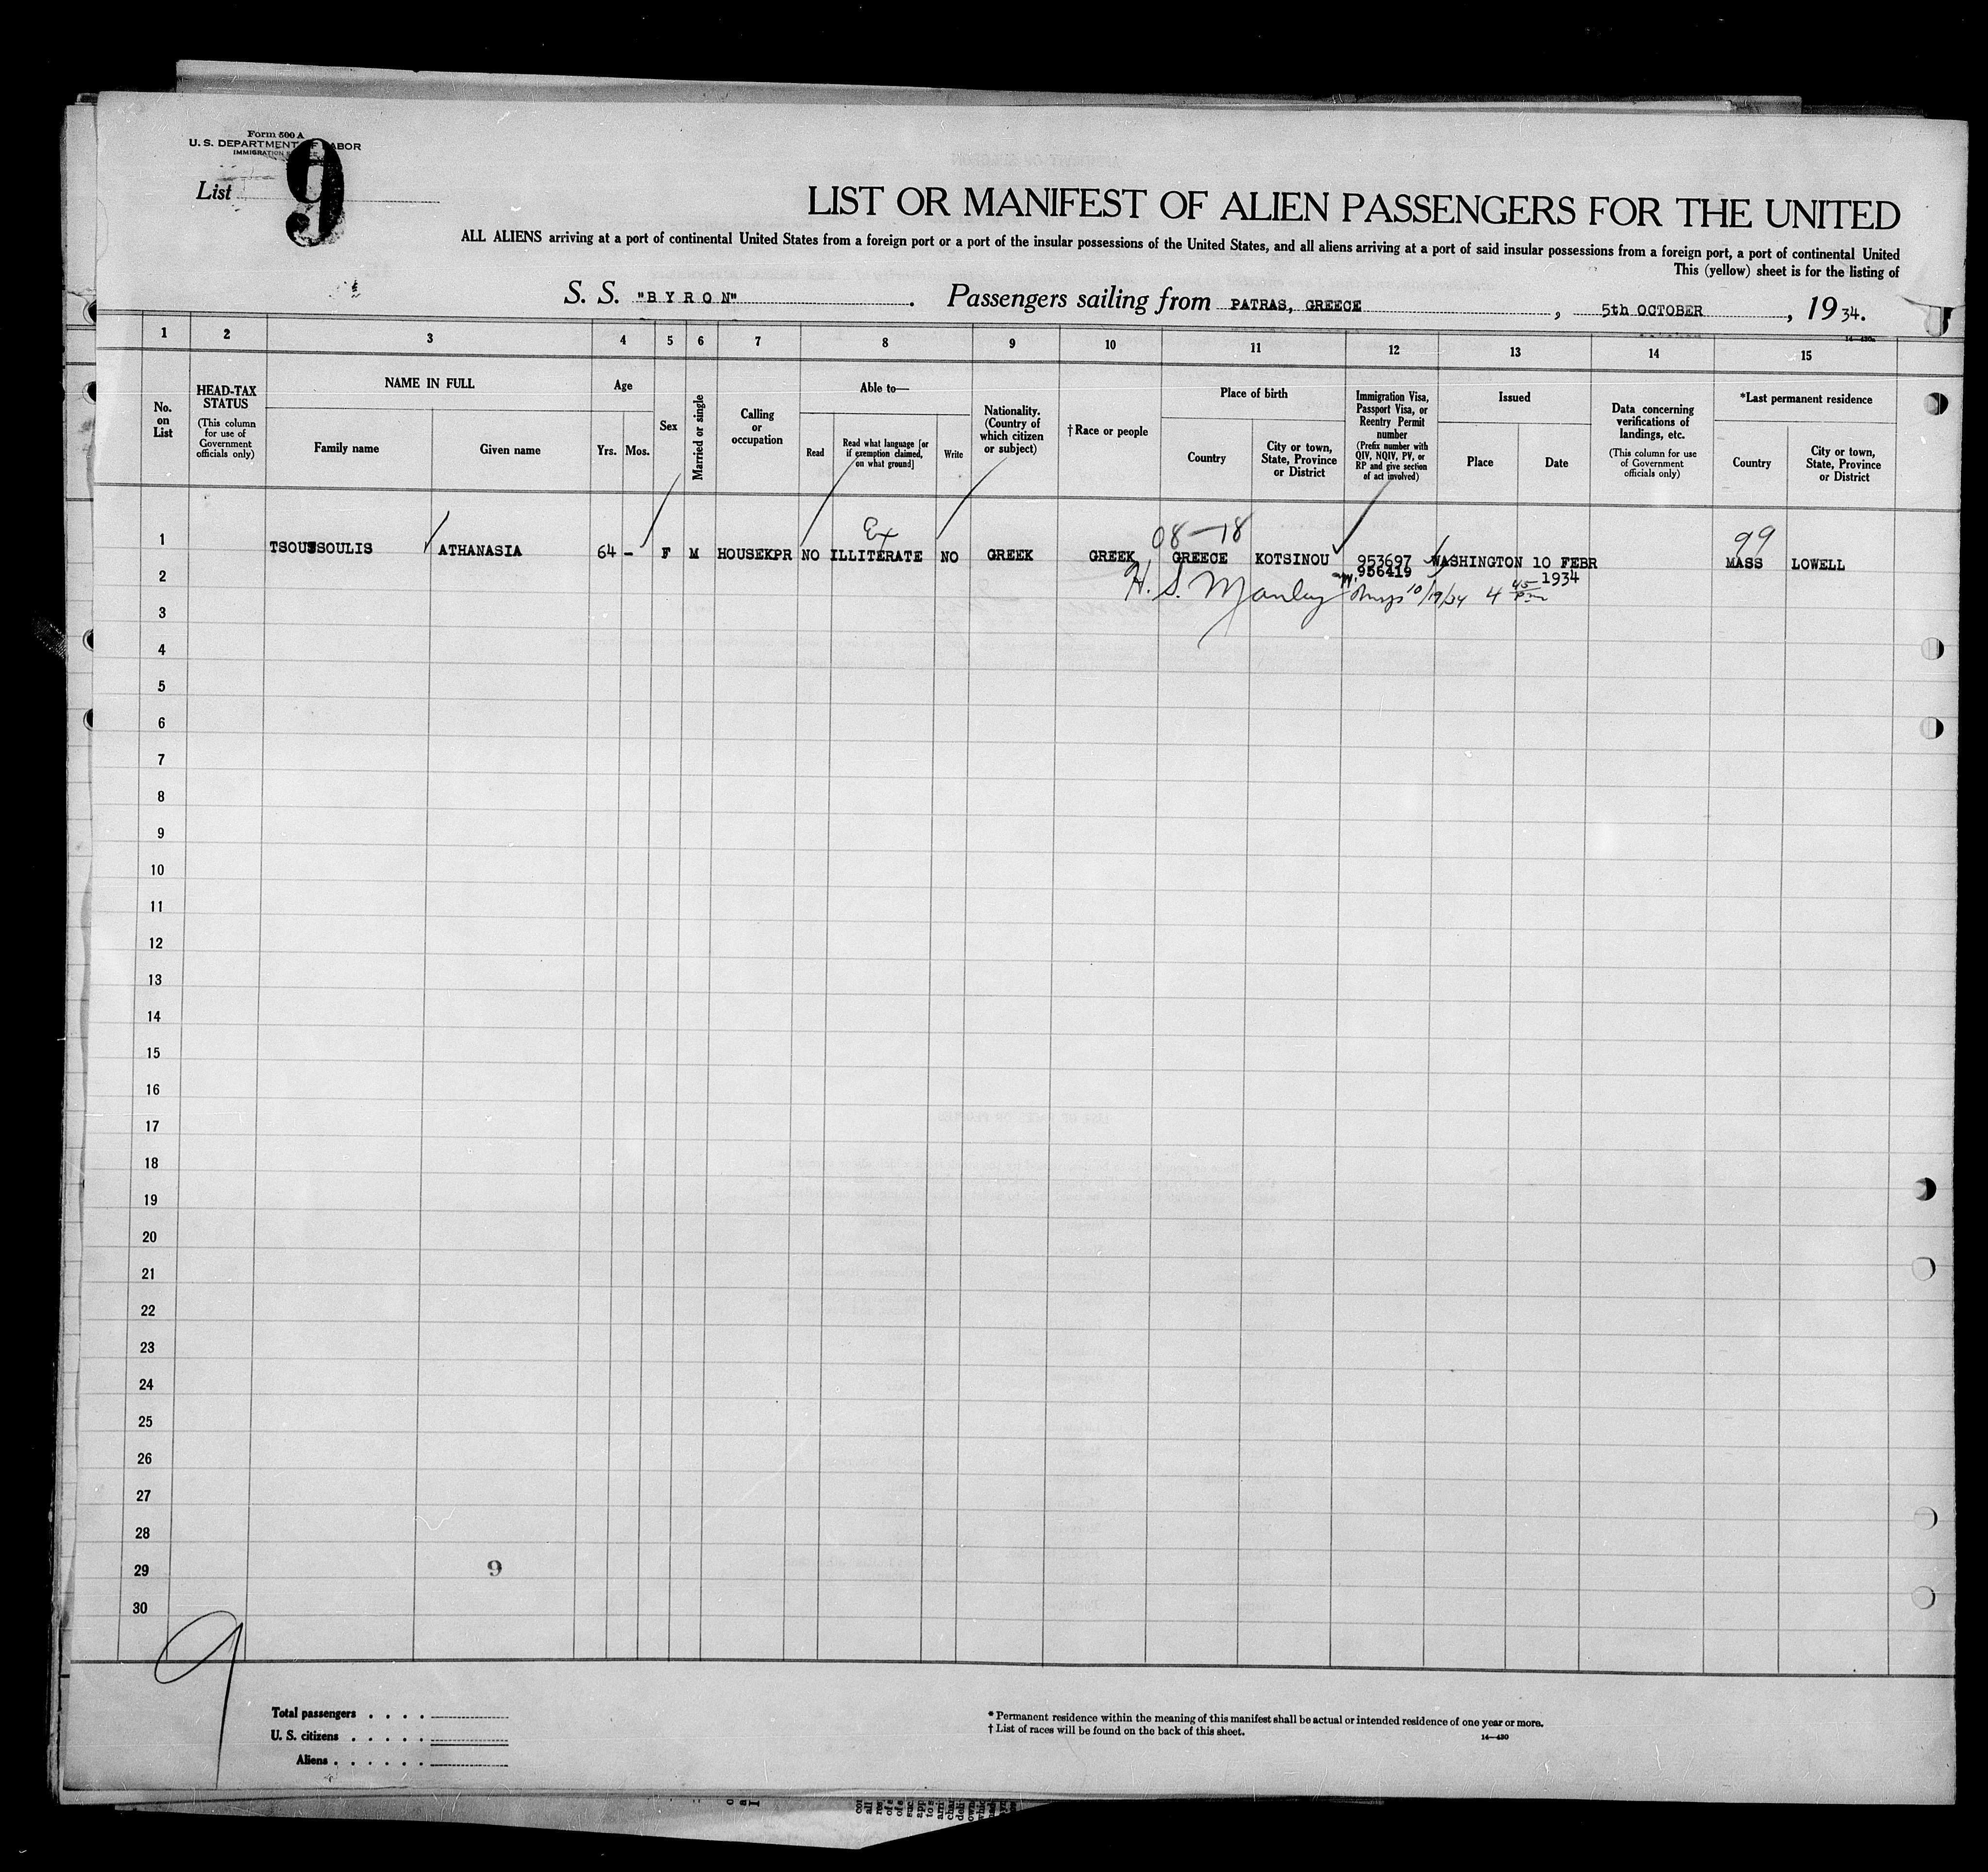 Form 500 A
U. S. DEPARTMENT OF LABOR
IMMIGRATION
List 9
LIST OR MANIFEST OF ALIEN PASSENGERS FOR THE UNITED
ALL ALIENS arriving at a port of continental United States from a foreign port or a port of the insular possessions of the United States, and all aliens arriving at a port of said insular possessions from a foreign port, a port of continental United
This (yellow) sheet is for the listing of
S. S. "BYRON". Passengers sailing from PATRAS, GREECE, 5th OCTOBER, 1934.
14—430a
1 2 3 4 5 6 7 8 9 10 11 12 13 14 15
No. on List
HEAD-TAX STATUS
(This column for use of Government officials only)
NAME IN FULL
Family name Given name
Age
Yrs. Mos.
Sex
Married or single
Calling or occupation
Able to—
Read
Read what language [or if exemption claimed, on what ground]
Write
Nationality. (Country of which citizen or subject)
†Race or people
Place of birth
Country
City or town, State, Province or District
Immigration Visa, Passport Visa, or Reentry Permit number
(Prefix number with QIV, NQIV, PV, or RP and give section of act involved)
Issued
Place Date
Data concerning verifications of landings, etc.
(This column for use of Government officials only)
*Last permanent residence
Country
City or town, State, Province or District
Ex 08-18 99
1 TSOUSSOULIS ATHANASIA 64 - F M HOUSEKPR NO ILLITERATE NO GREEK GREEK GREECE KOTSINOU 953697 WASHINGTON 10 FEBR MASS LOWELL
2 956419 1934
H. S. Manley 10/19/34 4 45 pm
3
4
5
6
7
8
9
10
11
12
13
14
15
16
17
18
19
20
21
22
23
24
25
26
27
28
29 9
30
9
Total passengers . . . .
U. S. citizens . . . . .
Aliens . . . . . .
* Permanent residence within the meaning of this manifest shall be actual or intended residence of one year or more.
† List of races will be found on the back of this sheet.
14—430